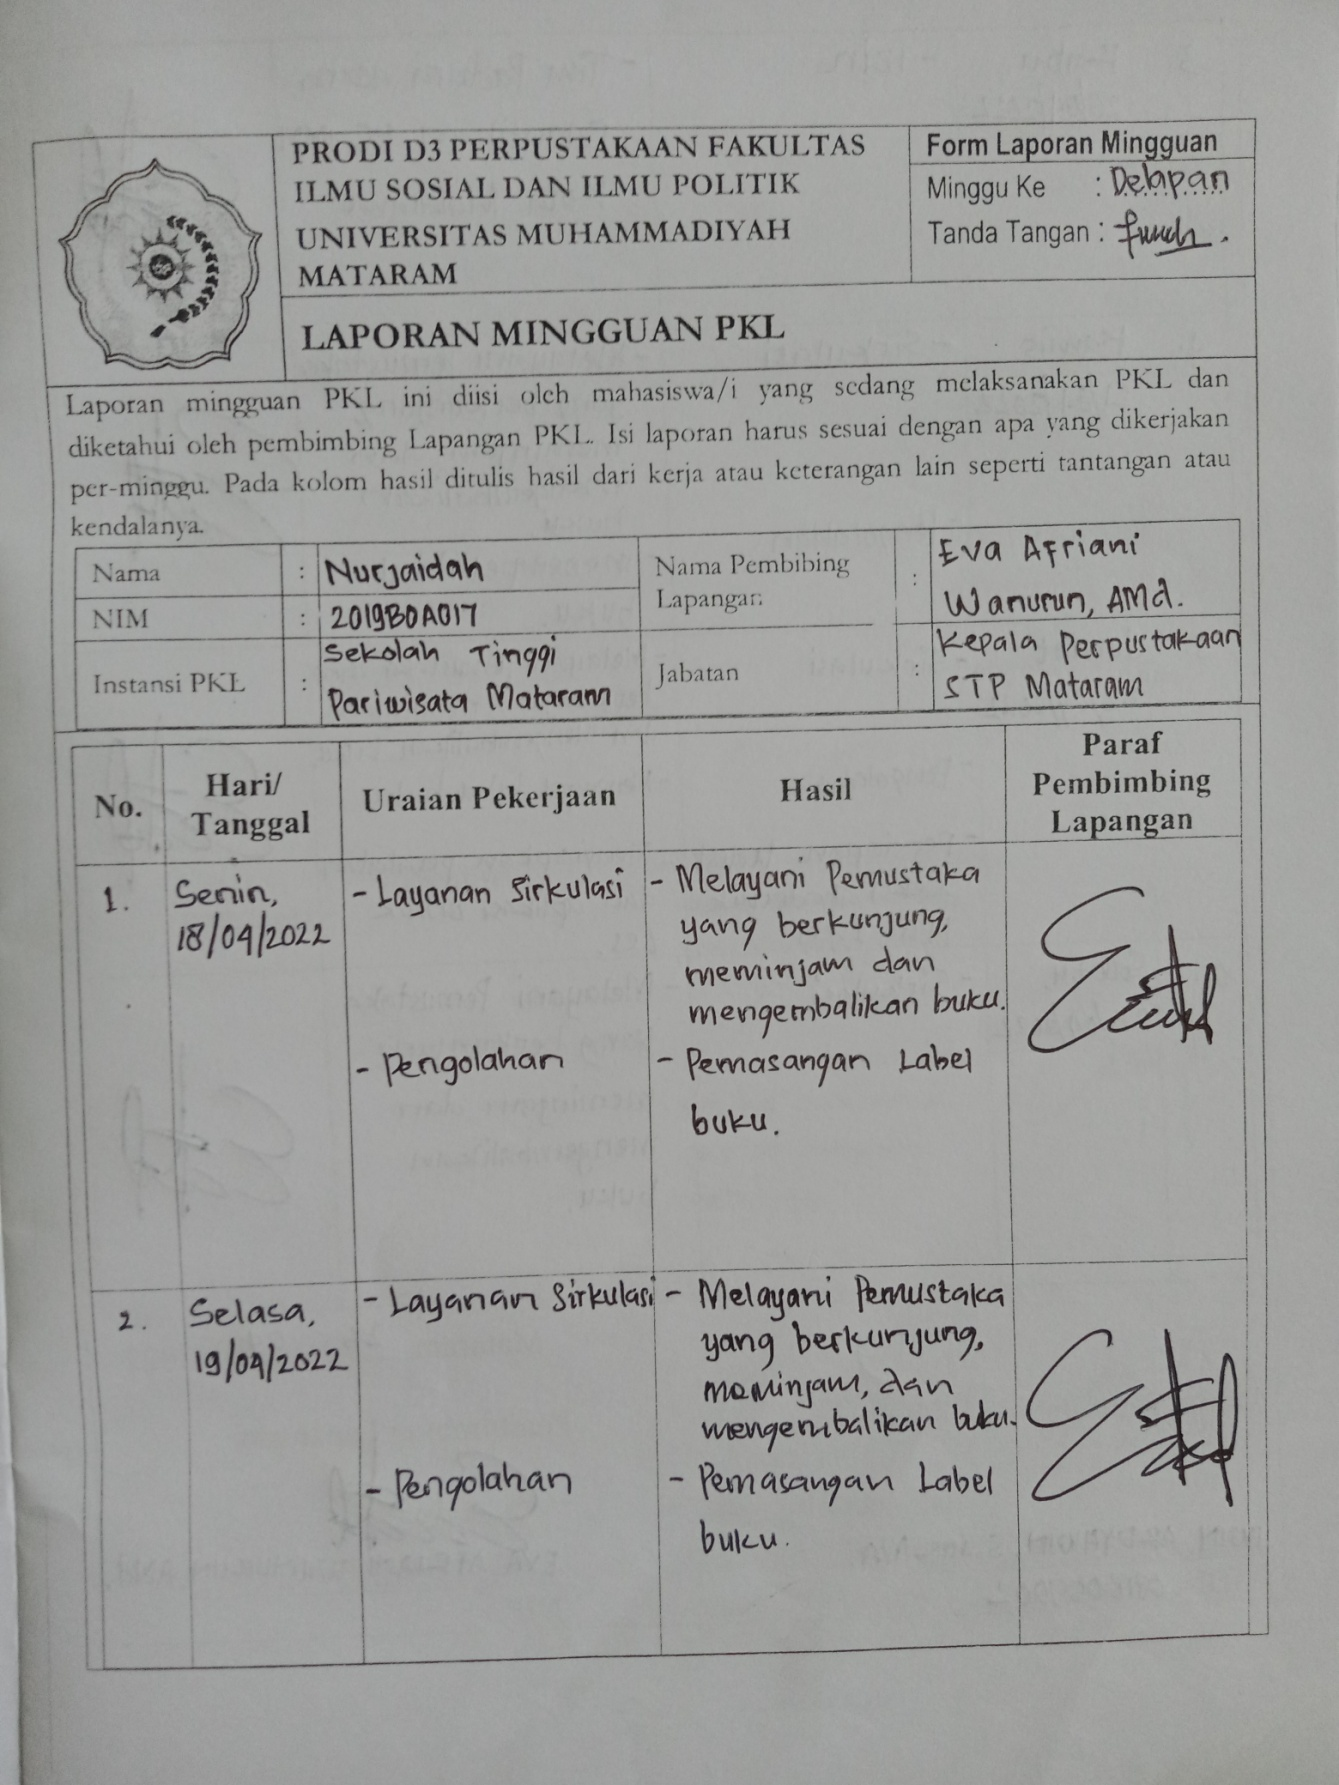 PRODI D3 PERPUSTAKAAN FAKULTAS
ILMU SOSIAL DAN ILMU POLITIK
UNIVERSITAS MUHAMMADIYAH
MATARAM
Form Laporan Mingguan
Minggu Ke : Delapan
Tanda Tangan :
LAPORAN MINGGUAN PKL
Laporan mingguan PKL ini diisi oleh mahasiswa/i yang sedang melaksanakan PKL dan
diketahui oleh pembimbing Lapangan PKL. Isi laporan harus sesuai dengan apa yang dikerjakan
per-minggu. Pada kolom hasil ditulis hasil dari kerja atau keterangan lain seperti tantangan atau
kendalanya.
Nama : Nurjaidah
NIM : 2019B0A017
Instansi PKL : Sekolah Tinggi
Pariwisata Mataram
Nama Pembibing
Lapangan :
Eva Afriani
Wanurun, AMd.
Jabatan :
Kepala Perpustakaan
STP Mataram
No.
Hari/
Tanggal
Uraian Pekerjaan
Hasil
Paraf
Pembimbing
Lapangan
1.
Senin,
18/04/2022
- Layanan Sirkulasi
- Melayani Pemustaka
yang berkunjung,
meminjam dan
mengembalikan buku.
- Pengolahan
- Pemasangan Label
buku.
2.
Selasa,
19/04/2022
- Layanan Sirkulasi
- Melayani Pemustaka
yang berkunjung,
meminjam, dan
mengembalikan buku.
- Pengolahan
- Pemasangan Label
buku.